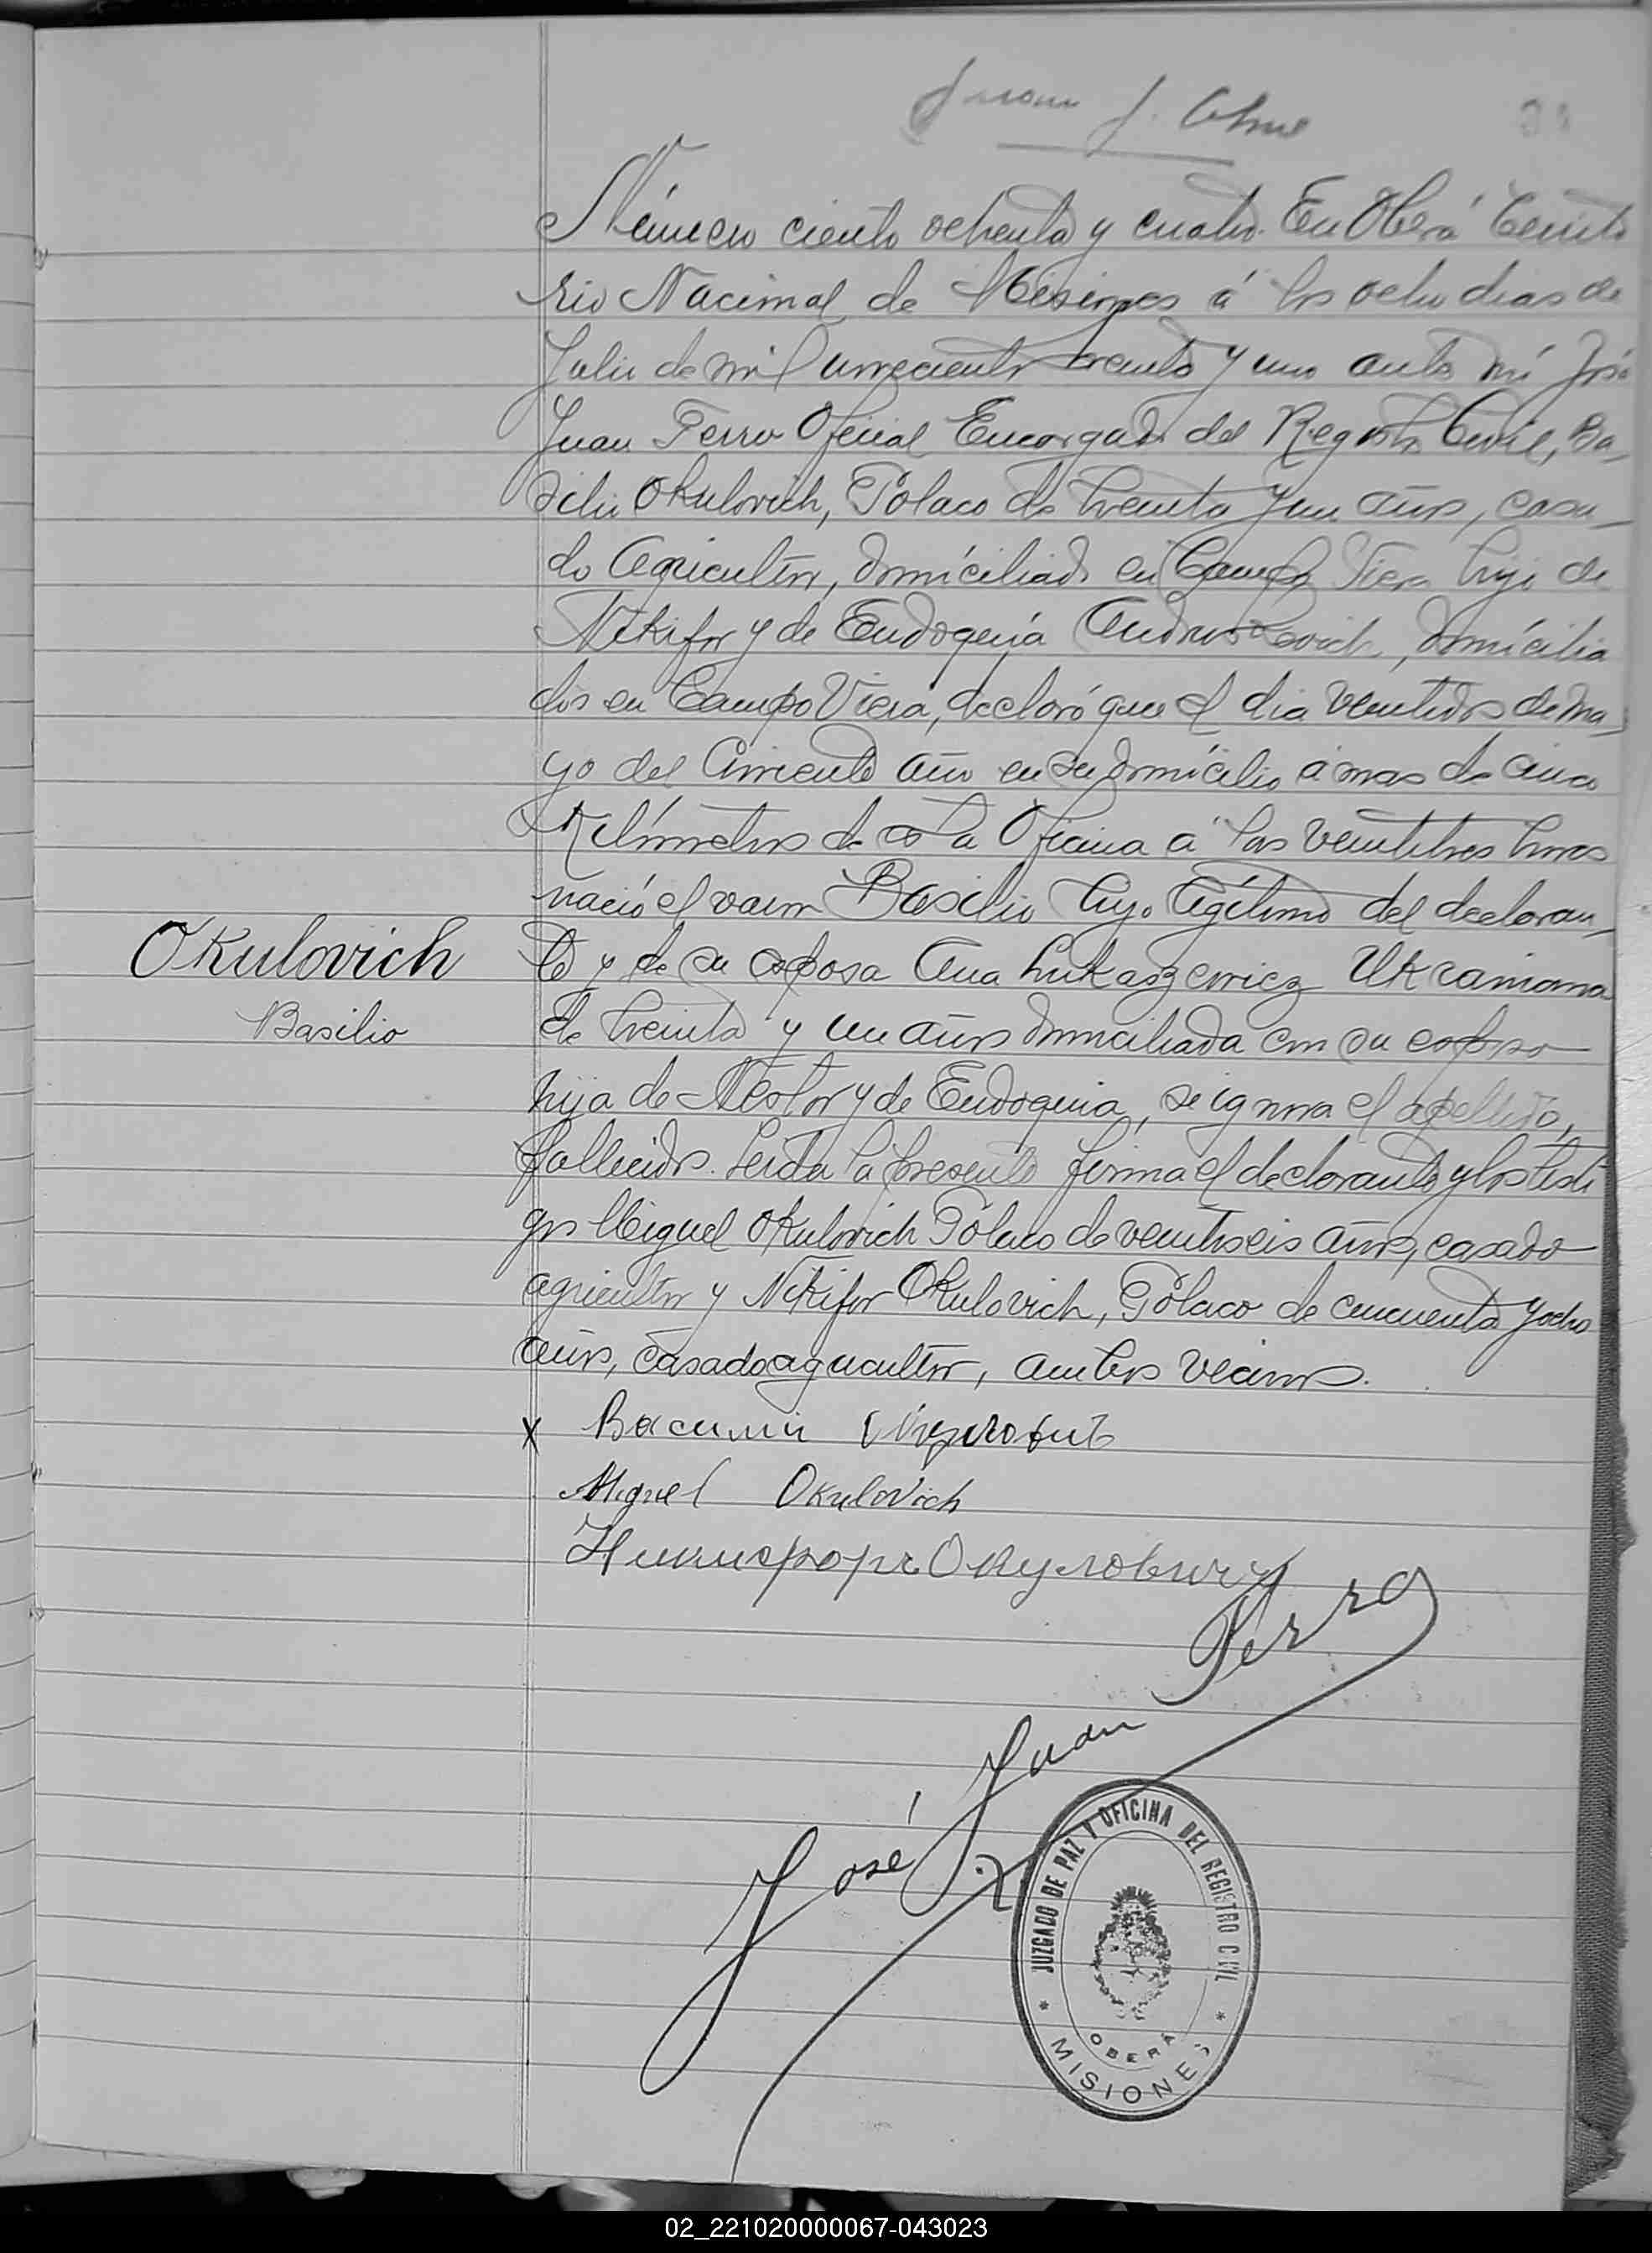 Número ciento ochenta y cuatro. En Oberá Territo
rio Nacional de Misiones á los ocho dias de
Julio de mil novecientos treinta y uno ante mí José
Juan Ferro Oficial Encargado del Registro Civil, Ba-
silio Okulovich, Polaco de treinta y un años, casa-
do Agricultor, domiciliado en Campo Viera hijo de
Nikifor y de Eudoquia domicilia
dos en Campo Viera, declaró que el dia veintidos de Ma
yo del corriente año en su domicilio á mas de cinco
Kilómetros de esta Oficina á las veintitres horas
nació el varon Basilio hijo legítimo del declaran-
te y de su esposa Ana Lukaszewicz Ukraniana
de treinta y un años domiciliada con su esposo
hija de Nestor y de Eudoquia, se ignora el apellido,
fallecidos. Leida la presente firma el declarante y los testi
gos Miguel Okulovich Polaco de veintiseis años, casado
agricultor y Nikifor Okulovich, Polaco de cincuenta y ocho
años, casado agricultor, ambos vecinos.
Okulovich
Basilio
X Василий
Miguel Okulovich
Никифоръ Окулович
José Juan Ferro
JUZGADO DE PAZ Y OFICINA DEL REGISTRO CIVIL
OBERÁ
* MISIONES *
02_221020000067-043023